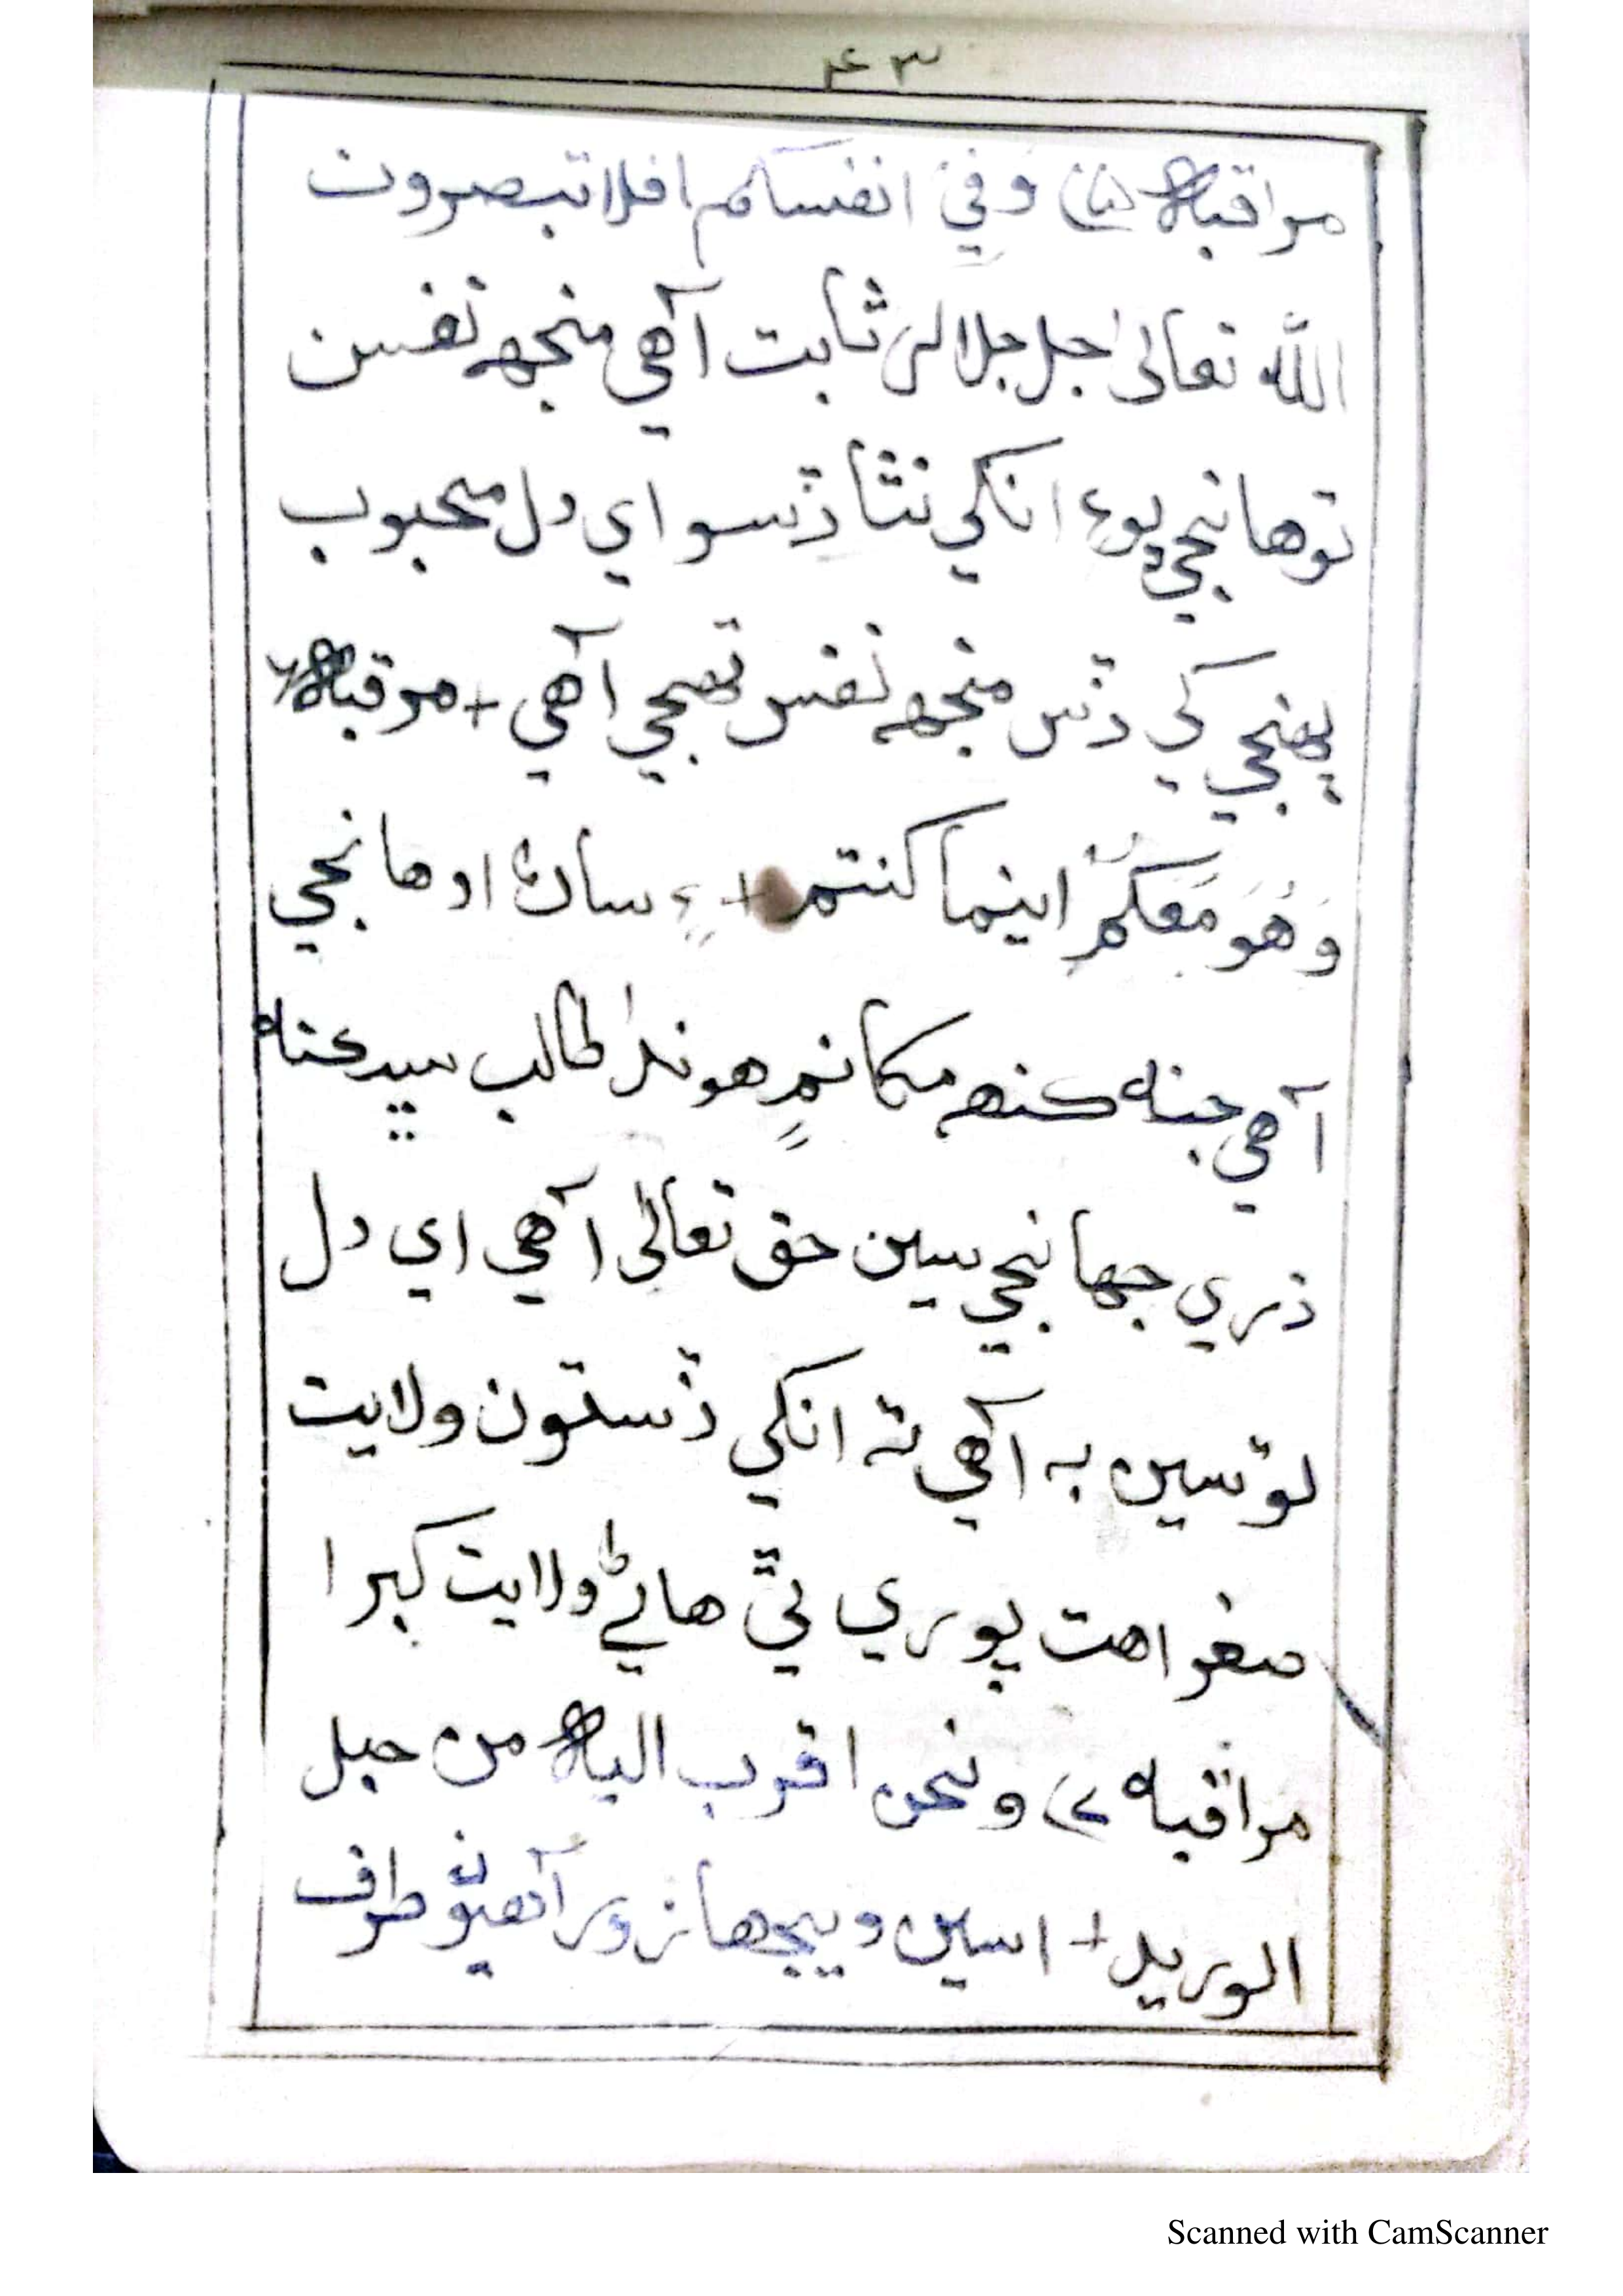 ۴۳
مراقبه وَفِيْ انفسكم افلا تبصرون
الله تعالىٰ جل جلاله ثابت آهي منجهہ نفسن
توهانجي پوءِ انكي نٿا ڏسو اي دل محبوب
پهنجي كي ڏس منجهہ نفس تهجي آهي + مرقبه ۶
وَهُوَ مَعَكُمْ اينما كنتم + ۽ ساڻ اوهانجي
آهي جنهہ كنهہ مكانم هوندا طالب سيد
ذري جهانجي سين حق تعالىٰ آهي اي دل
توسين به آهي ته انكي ڏس تون ولايت
صغرا هت پوري ٿي هاڻي ولايت كبرا
مراقبه ۷ ونحن اقرب اليه من حبل
الوريد + اسين ويجها زور آهيون طرف
Scanned with CamScanner